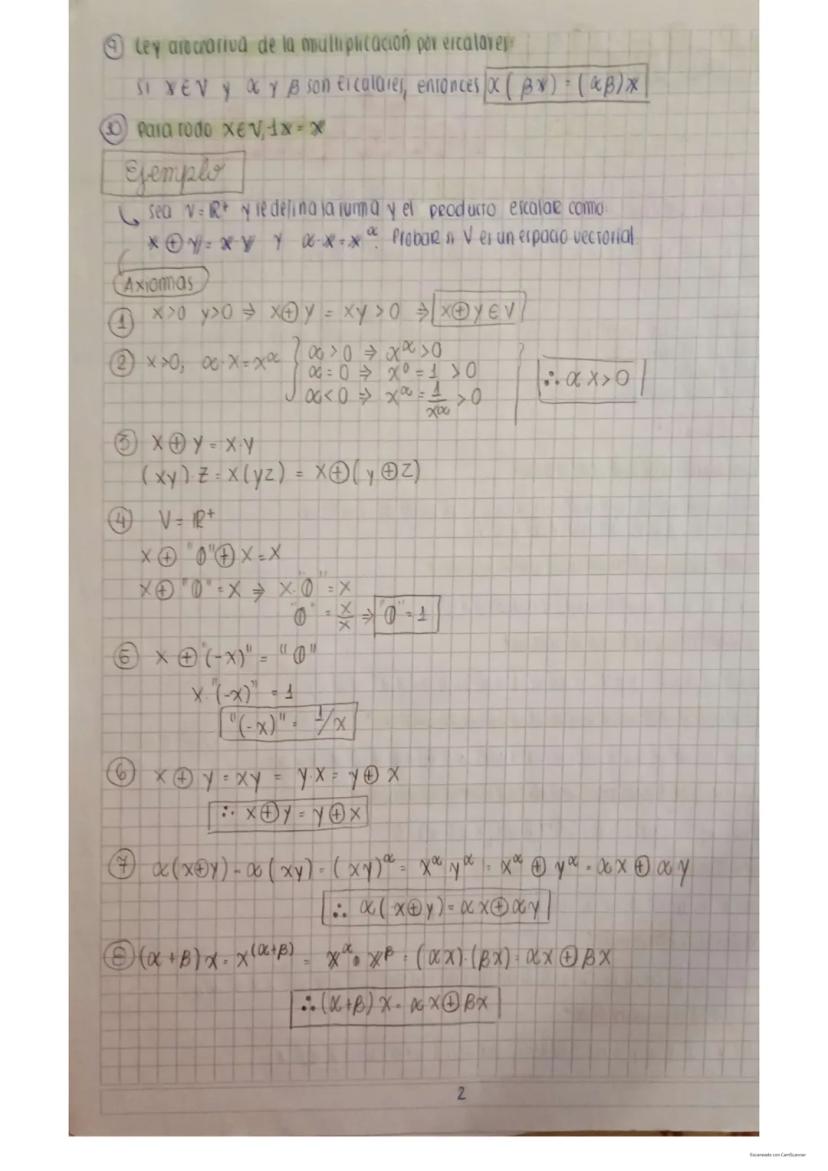 ⑨ Ley asociativa de la multiplicación por escalares:
Si x∈V y α y β son escalares, entonces α(βx)=(αβ)x
⑩ Para todo x∈V, 1x=x
Ejemplo
↳ Sea V=ℝ⁺ y se defina la suma y el producto escalar como
x⊕y=x·y y α·x=x^α. Probar si V es un espacio vectorial
Axiomas
① x>0 y>0 ⇒ x⊕y = xy > 0 ⇒ x⊕y∈V
② x>0, α·x=x^α { α>0 ⇒ x^α>0
α=0 ⇒ x⁰=1>0 ∴ αx>0
α<0 ⇒ x^α=1/x^α>0
③ x⊕y=x·y
(xy)z=x(yz)=x⊕(y⊕z)
④ V=ℝ⁺
x⊕"0"⊕x=x
x⊕"0"=x ⇒ x·"0"=x
"0"=x/x ⇒ "0"=1
⑤ x⊕"(-x)"="0"
x·"(-x)"=1
"(-x)"=1/x
⑥ x⊕y=xy=y·x=y⊕x
∴ x⊕y=y⊕x
⑦ α(x⊕y)=α(xy)=(xy)^α=x^α y^α=x^α⊕y^α=αx⊕αy
∴ α(x⊕y)=αx⊕αy
⑧ (α+β)x=x^(α+β)=x^α·x^β=(αx)·(βx)=αx⊕βx
∴ (α+β)x=αx⊕βx
2
Escaneado con CamScanner